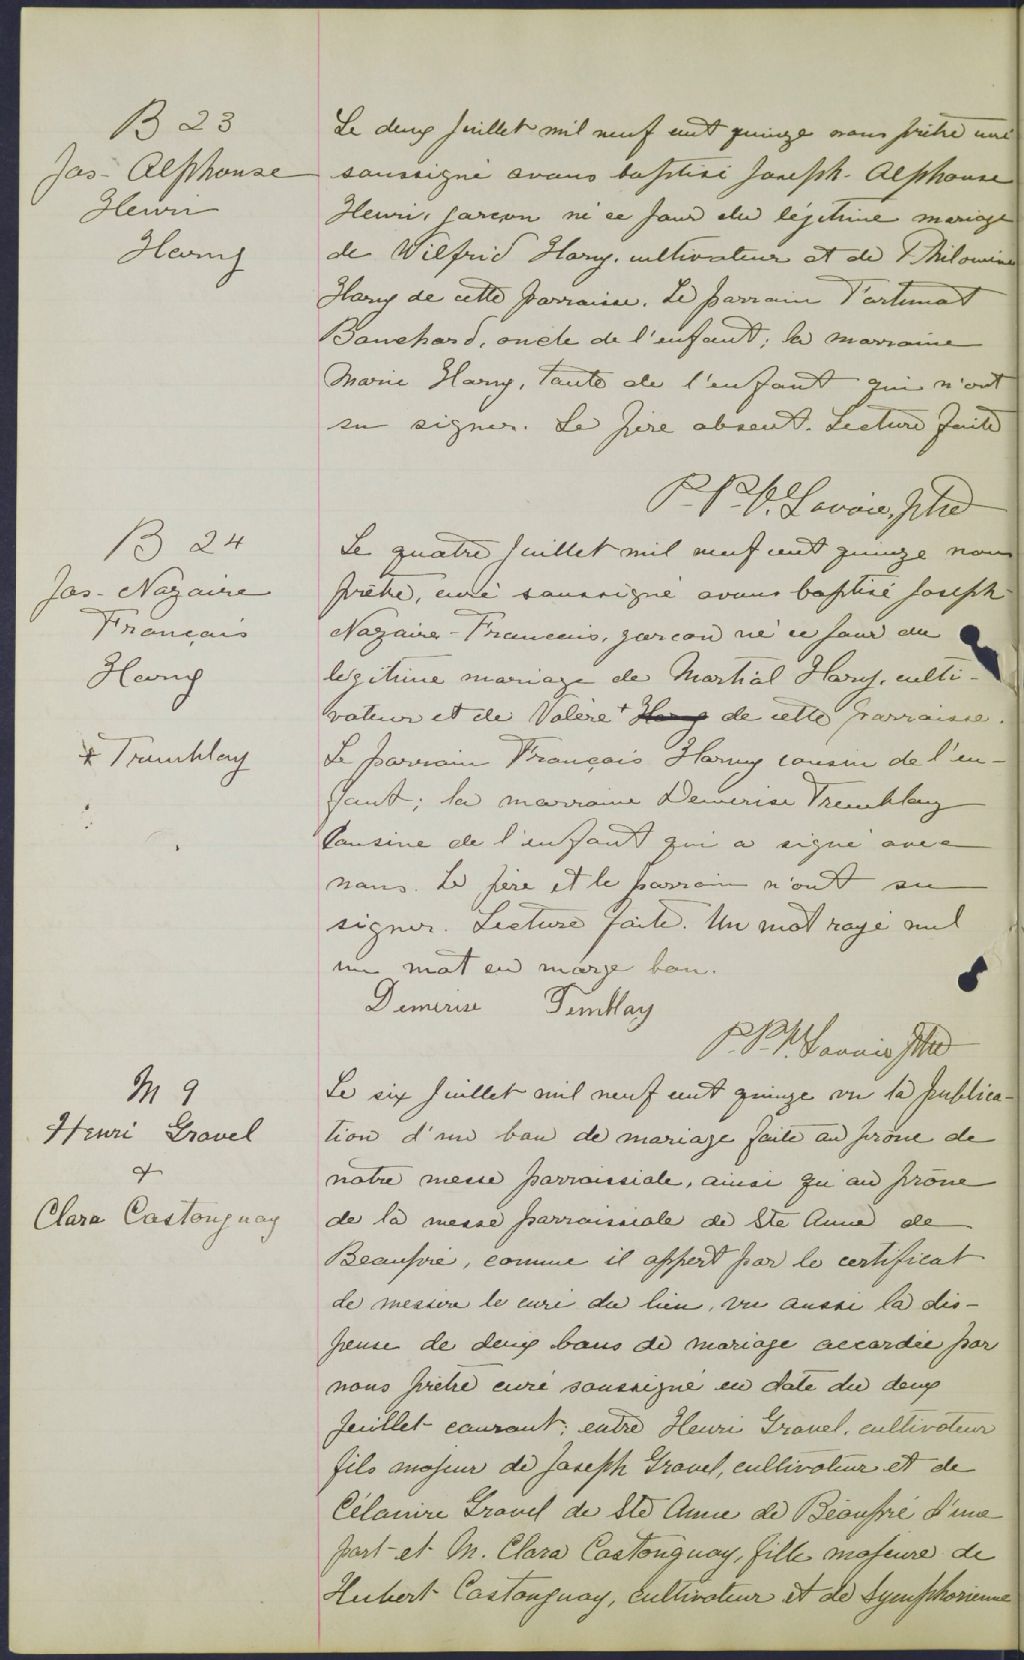 B 23
Jos- Alphonse
Henri
Harvy
Le deux Juillet mil neuf cent quinze nous prêtre curé
soussigné avons baptisé Joseph- Alphonse
Henri, garçon né ce jour du légitime mariage
de Wilfrid Harvy, cultivateur et de Philomène
Harvy de cette parroisse. Le parrain Fortunat
Bouchard, oncle de l'enfant; la marraine
Marie Harvy, tante de l'enfant qui n'ont
su signer. Le père absent. Lecture faite
P. P. V. Lavoie, ptre
B 24
Jos- Nazaire
Français
Harvy
+ Tremblay
Le quatre Juillet mil neuf cent quinze nous
prêtre, curé soussigné avons baptisé Joseph-
Nazaire- Francais, garcon né ce jour du
légitime mariage de Martial Harvy, culti-
vateur et de Valère + Harvy de cette parroisse.
Le parrain François Harvy cousin de l'en-
fant; la marraine Demerise Tremblay
Cousine de l'enfant qui a signé avec
nous. Le père et le parrain n'ont su
signer. Lecture faite. Un mot rayé nul
un mot en marge bon.
Demerise Temblay
P. P. V. Lavoie ptre
M 9
Henri Gravel
&
Clara Castonguay
Le six Juillet mil neuf cent quinze vu la publica-
tion d'un ban de mariage faite au prône de
notre messe parroissiale, ainsi qu'au prône
de la messe parroissiale de Ste Anne de
Beaupré, comme il appert par le certificat
de messire le curé du lieu, vu aussi la dis-
pense de deux bans de mariage accordée par
nous prêtre curé soussigné en date du deux
Juillet courant; entre Henri Gravel, cultivateur
fils majeur de Joseph Gravel, cultivateur et de
Célanire Gravel de Ste Anne de Beaupré d'une
part et M. Clara Castonguay, fille majeure de
Hubert Castonguay, cultivateur et de Symphorienne